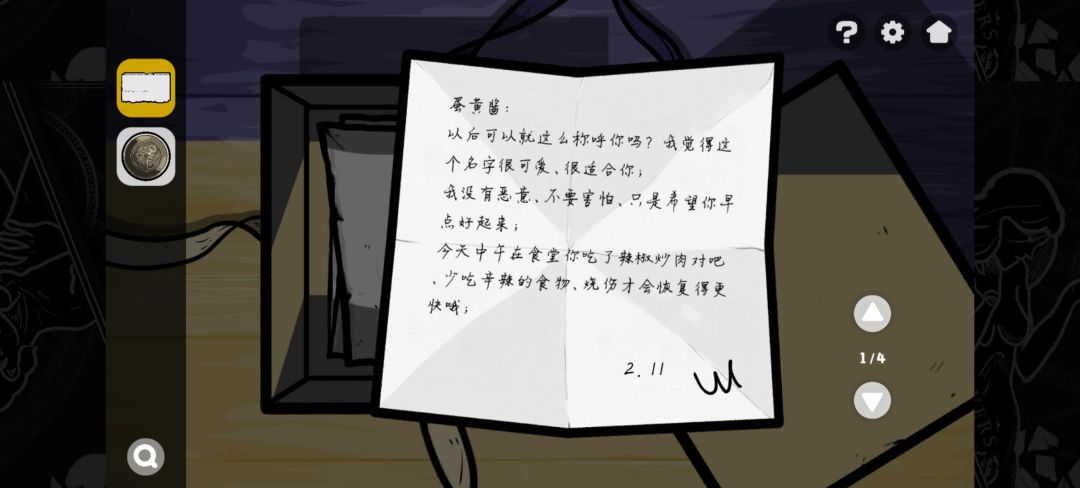 蛋黄酱：
以后可以就这么称呼你吗？我觉得这
个名字很可爱、很适合你；
我没有恶意、不要害怕、只是希望你早
点好起来；
今天中午在食堂你吃了辣椒炒肉对吧
、少吃辛辣的食物、烧伤才会恢复得更
快哦；
2.11
W
1/4